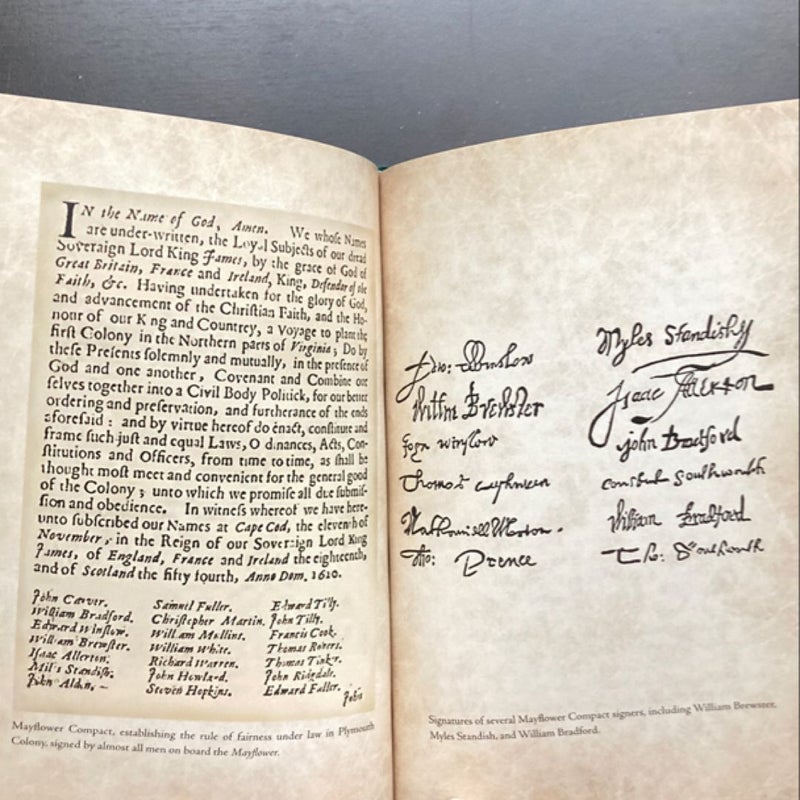 IN the Name of God, Amen. We whose Names
are under-written, the Loyal Subjects of our dread
Soveraign Lord King James, by the grace of God of
Great Britain, France and Ireland, King, Defendor of the
Faith, &c. Having undertaken for the glory of God,
and advancement of the Christian Faith, and the Ho-
nour of our King and Countrey, a Voyage to plant the
first Colony in the Northern parts of Virginia; Do by
these Presents solemnly and mutually, in the presence of
God and one another, Covenant and Combine our
selves together into a Civil Body Politick, for our better
ordering and preservation, and furtherance of the ends
aforesaid: and by virtue hereof do enact, constitute and
frame such just and equal Laws, Ordinances, Acts, Con-
stitutions and Officers, from time to time, as shall be
thought most meet and convenient for the general good
of the Colony; unto which we promise all due submis-
sion and obedience. In witness whereof we have here-
unto subscribed our Names at Cape Cod, the eleventh of
November, in the Reign of our Soveraign Lord King
James, of England, France and Ireland the eighteenth,
and of Scotland the fifty fourth, Anno Dom. 1620.
John Carver.
William Bradford.
Edward Winslow.
William Brewster.
Isaac Allerton.
Miles Standish.
John Alden.
Samuel Fuller.
Christopher Martin.
William Mullins.
William White.
Richard Warren.
John Howland.
Steven Hopkins.
Edward Tilly.
John Tilly.
Francis Cook.
Thomas Rogers.
Thomas Tinker.
John Ridgdale.
Edward Fuller.
John
Mayflower Compact, establishing the rule of fairness under law in Plymouth
Colony, signed by almost all men on board the Mayflower.
Winslow
Willm Brewster
John winslow
Thomas cushman
Nathaniell Morton.
Tho: Prence
Myles Standish
Isaac Allerton
john Bradford
constant Southworth
William Bradford
Tho: Southworth
Signatures of several Mayflower Compact signers, including William Brewster,
Myles Standish, and William Bradford.